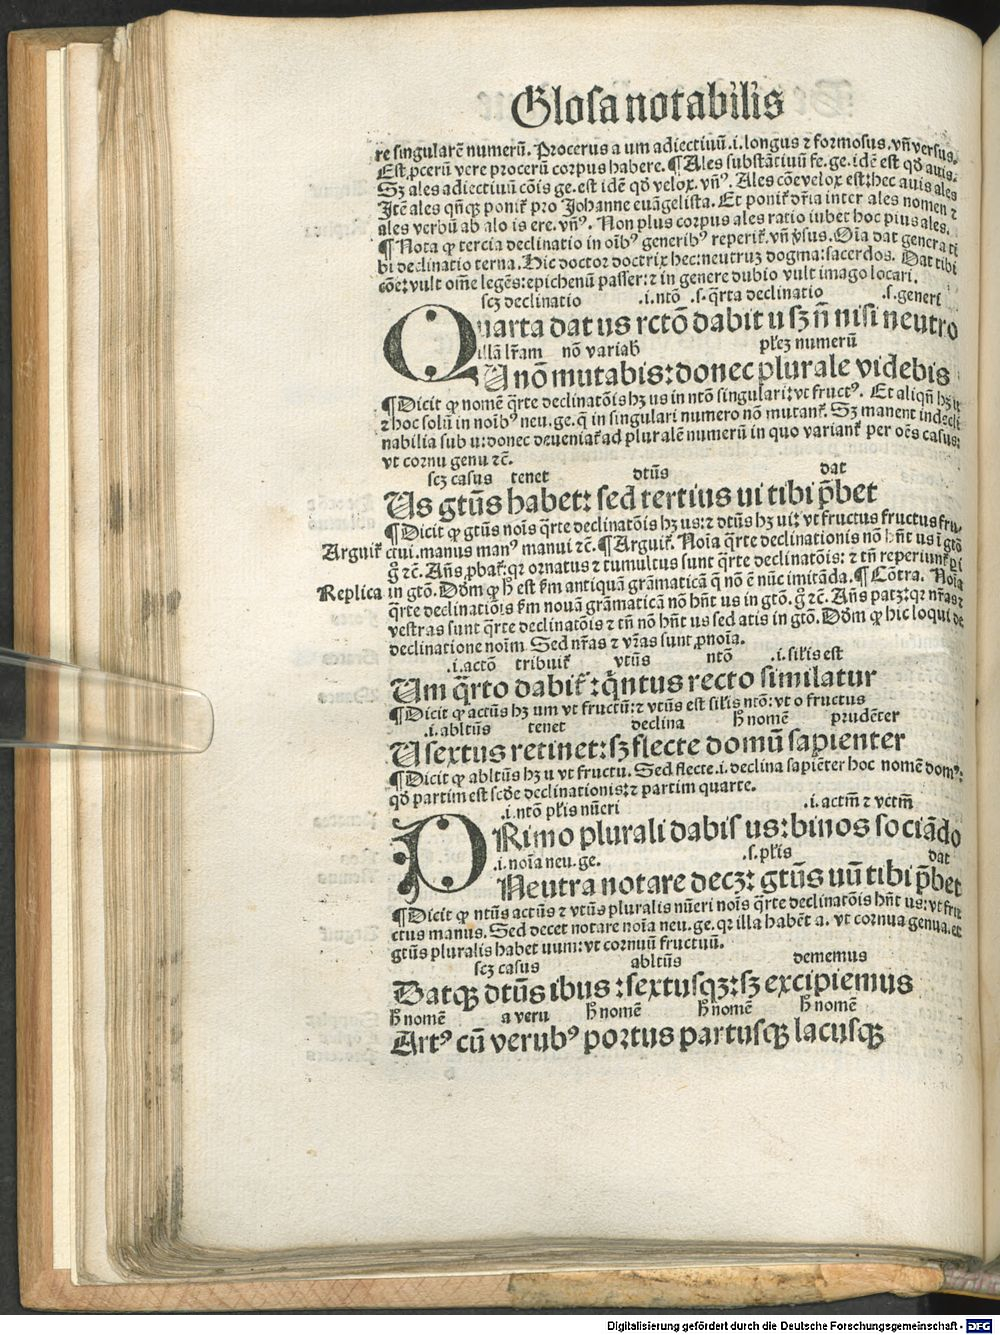 Glosa notabilis
re singularē numerū. Procerus a um adiectiuū .i. longus ⁊ formosus. vn̄ versus.
Est ꝓcerū vere procerū corpus habere. ¶ Ales substātiuū fe. ge. idē est qd̄ auis.
Sꝫ ales adiectiuū cōis ge. est idē qd̄ velox. vn̄ꝰ. Ales cōe velox est: hec auis ales
Itē ales qn̄qꝫ ponit᷑ pro Johanne euāgelista. Et ponit᷑ dr̄ia inter ales nomen ⁊
ales verbū ab alo is ere. vn̄ꝰ. Non plus corpus ales ratio iubet hoc pius ales.
¶ Nota ꝙ tercia declinatio in oībꝰ generibꝰ reperit᷑. vn̄ v̄sus. Oīa dat genera ti
bi declinatio terna. Hic doctor doctrix hec: neutruꝫ dogma: sacerdos. Dat tibi
cōe: vult om̄e legēs: epichenū passer: ⁊ in genere dubio vult imago locari.
scꝫ declinatio .i. ntō .s. q̄rta declinatio .s. generi
Quarta dat us rctō dabit u sꝫ n̄ nisi neutro
illā lr̄am nō variab̄ pl̄eꝫ numerū
U nō mutabis: donec plurale videbis
¶ Dicit ꝙ nomē q̄rte declinatōis hꝫ us in ntō singulari: vt fructꝰ. Et aliqn̄ hꝫ u
⁊ hoc solū in noībꝰ neu. ge. q̄ in singulari numero nō mutant᷑. Sꝫ manent indecli
nabilia sub u: donec deueniat᷑ ad pluralē numerū in quo variant᷑ per oēs casus:
vt cornu genu ⁊c̄.
scꝫ casus tenet dtūs dat
Us gtūs habet: sed tertius ui tibi p̄bet
¶ Dicit ꝙ gtūs noīs q̄rte declinatōis hꝫ us: ⁊ dtūs hꝫ ui: vt fructus fructus fru
Arguit᷑ ctui. manus manꝰ manui ⁊c̄. ¶ Arguit᷑. Noīa q̄rte declinationis nō hn̄t us ī gtō
g̊ ⁊c̄. An̄s ꝓbat᷑: qꝛ ornatus ⁊ tumultus sunt q̄rte declinatōis: ⁊ tn̄ reperiunt᷑ ꝑ i
Replica in gtō. Dd̄m ꝙ h̄ est ẜm antiquā grāmaticā q̄ nō ē nūc imitāda. ¶ Cōtra. Noīa
q̄rte declinatiōis ẜm nouā grāmaticā nō hn̄t us in gtō. g̊ ⁊c̄. An̄s patꝫ: qꝛ nr̄as ⁊
vestras sunt q̄rte declinatōis ⁊ tn̄ nō hn̄t us sed atis in gtō. Dd̄m ꝙ hic loqui de
declinatione noīm. Sed nr̄as ⁊ vr̄as sunt ꝓnoīa.
.i. actō tribuit᷑ vtūs ntō .i. sil̄is est
Um q̄rto dabit᷑: q̄ntus recto similatur
¶ Dicit ꝙ actūs hꝫ um vt fructū: ⁊ vtūs est sil̄is ntō: vt o fructus
.i. abltūs tenet declina h̄ nomē prudēter
U sextus retinet: sꝫ flecte domū sapienter
¶ Dicit ꝙ abltūs hꝫ u vt fructu. Sed flecte .i. declina sapiēter hoc nomē domꝰ:
qd̄ partim est scd̄e declinationis: ⁊ partim quarte.
.i. ntō pl̄is nūeri .i. actm̄ ⁊ vctm̄
PRimo plurali dabis us: binos sociādo
.i. noīa neu. ge. .s. pl̄is dat
Neutra notare decꝫ: gtūs uū tibi p̄bet
¶ Dicit ꝙ ntūs actūs ⁊ vtūs pluralis nūeri noīs q̄rte declinatōis hn̄t us: vt fru
ctus manus. Sed decet notare noīa neu. ge. qꝛ illa habēt a. vt cornua genua. et
gtūs pluralis habet uum: vt cornuū fructuū.
scꝫ casus abltūs dememus
Datqꝫ dtūs ibus: sextusqꝫ: sꝫ excipiemus
h̄ nomē a veru h̄ nomē h̄ nomē h̄ nomē
Artꝰ cū verubꝰ portus partusqꝫ lacusqꝫ
Digitalisierung gefördert durch die Deutsche Forschungsgemeinschaft - DFG